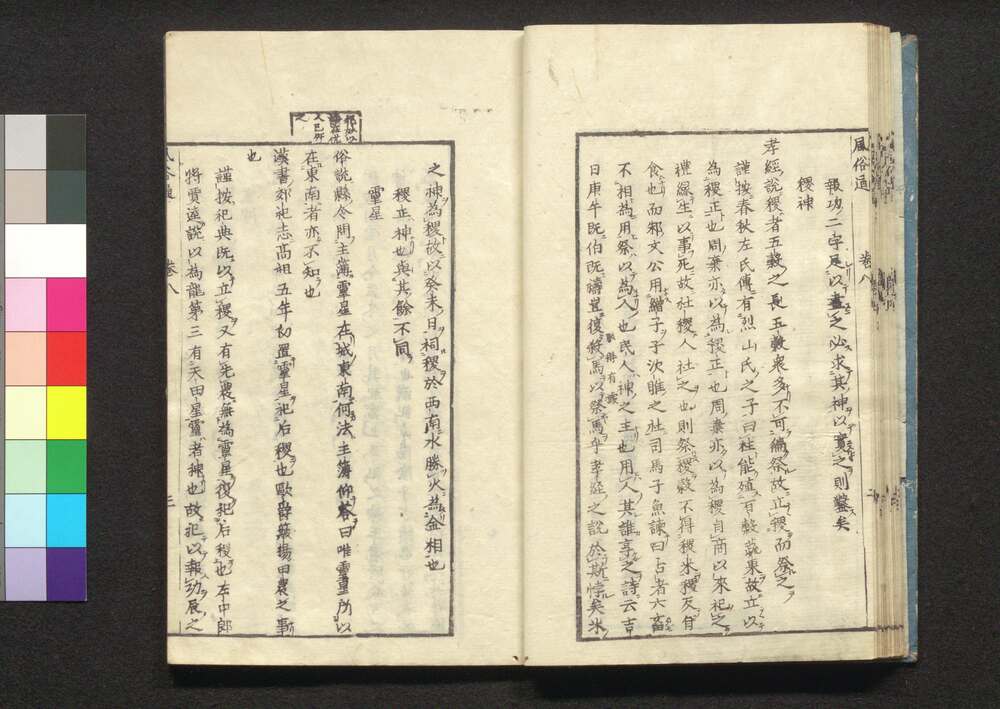 風俗通 卷八
報功二字展以盡乏必求其神以實之則鑿矣
稷神
孝經説稷者五穀之長五穀衆多不可徧祭故立稷而祭之
謹按春秋左氏傳有烈山氏之子曰柱能殖百穀蔬果故立以
為稷正也周棄亦以為稷正也周棄亦以為稷自商以來祀之
禮緣生以事死故社稷人社之也則祭稷穀不得稷米稷反自
食也而邾文公用繒子于次雎之社司馬子魚諫曰古者六畜
不相為用祭以為人也民人神之主也用人其誰享之詩云吉
日庚午既伯既禱豈復殺馬以祭馬乎孝經之説於斯悖矣米
之神為稷故以癸未日祠稷於西南水勝火為金相也
稷正神也與其餘不同
靈星
俗説縣令問主簿靈星在城東南何法主簿仰答曰唯靈星所以
在東南者亦不知也
漢書郊祀志高祖五年初置靈星祀后稷也歐爵簸揚田農之事
也
謹按祀典既以立稷又有先農無為靈星復祀后稷也左中郎
將賈逵説以為龍第三有天田星靈者神也故祀以報功展之